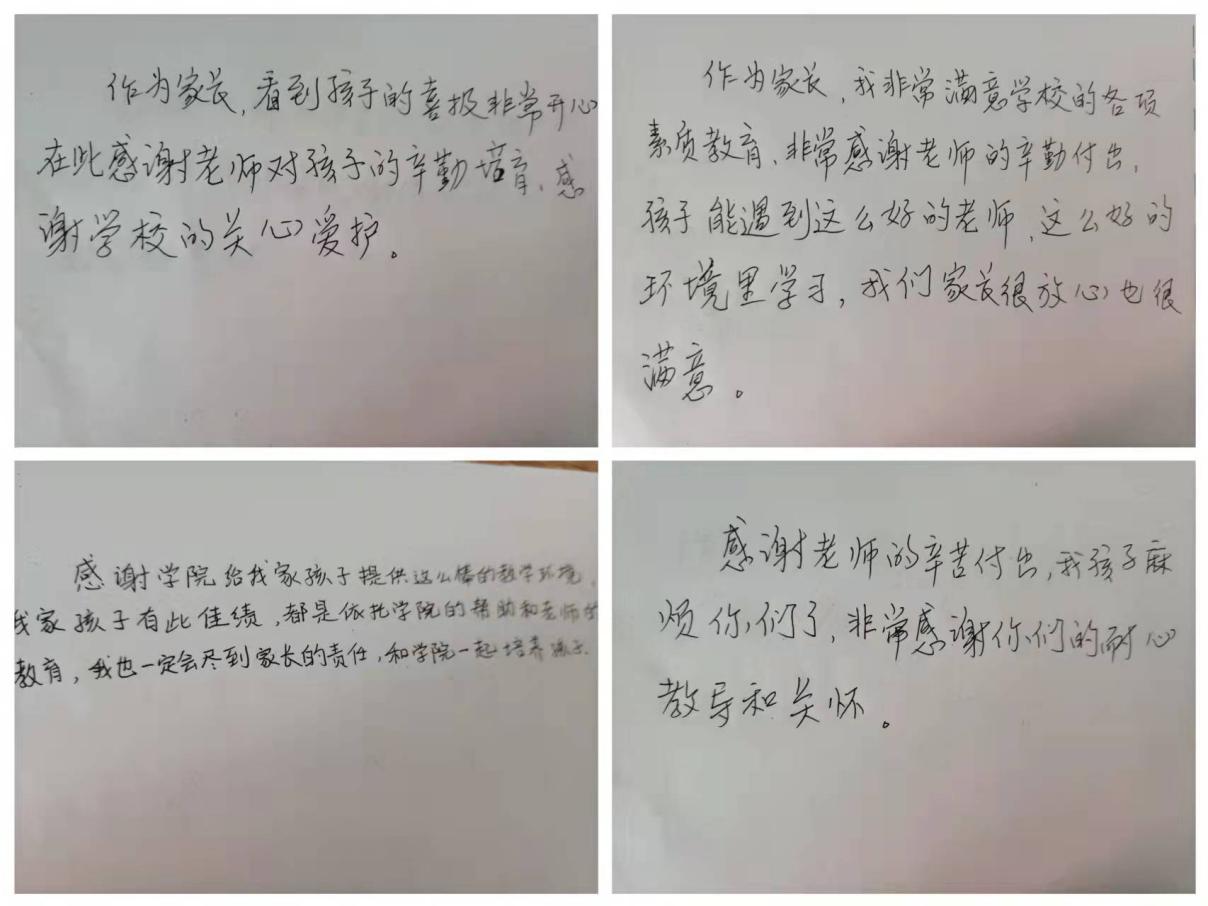 作为家长，看到孩子的喜报非常开心
在此感谢老师对孩子的辛勤培育、感
谢学校的关心爱护。
作为家长，我非常满意学校的各项
素质教育、非常感谢老师的辛勤付出，
孩子能遇到这么好的老师、这么好的
环境里学习，我们家长很放心也很
满意。
感谢学院给我家孩子提供这么棒的教学环境，
我家孩子有此佳绩，都是依托学院的帮助和老师的
教育，我也一定会尽到家长的责任，和学院一起培养孩子.
感谢老师的辛苦付出，我孩子麻
烦你们了，非常感谢你们的耐心
教导和关怀。